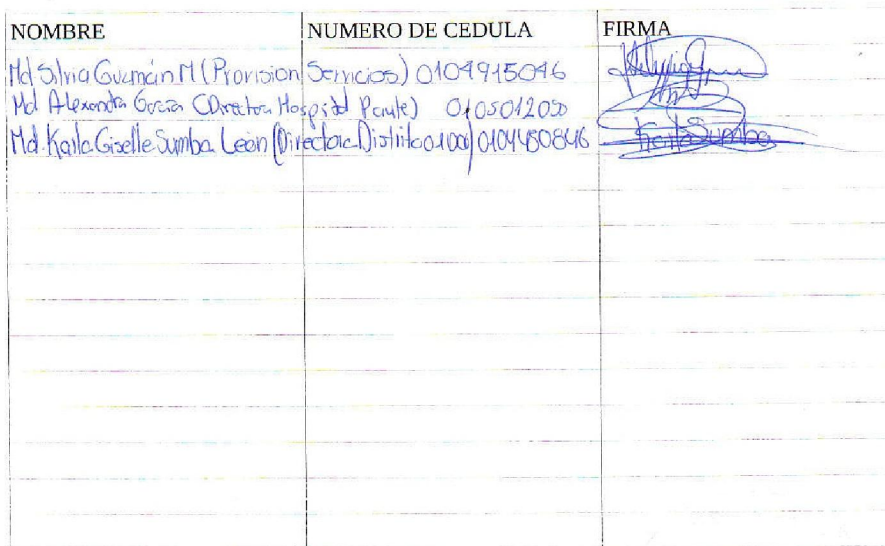 NOMBRE NUMERO DE CEDULA FIRMA
Md Silvia Guzmán M (Provision Servicios) 0104915046
Md Alexandra García (Directora Hospital Paute) 0105012050
Md. Karla Giselle Sumba León (Directora Distrito 01D06) 0104450846 Karla Sumba